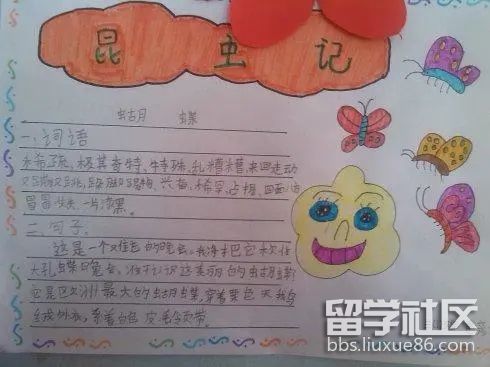 昆虫记
蝴蝶
一、词语
稀疏、极其奇特、特殊、乱糟糟、来回走动
又蹦又跳、兴奋、稀罕、占据、四面
冒冒失失、一片漆黑。
二、句子。
这是一个难忘的晚会。我将把它称作
大孔雀蝶晚会。谁不认识这美丽的蝴蝶
它是欧洲最大的蝴蝶,穿着栗色天鹅
绒外衣,系着白色皮毛领带。
留学社区
bbs.liuxue86.com